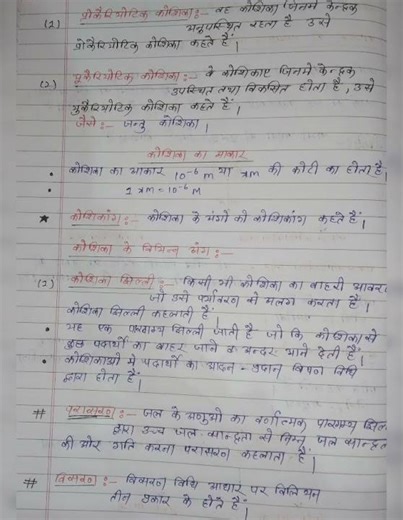 (1) प्रोकैरियोटिक कोशिका:- वह कोशिका जिनमें केन्द्रक
अनुपस्थित रहता है उसे
प्रोकैरियोटिक कोशिका कहते हैं।
(2) यूकैरियोटिक कोशिका:- वे कोशिकाए जिनमें केन्द्रक
उपस्थित तथा विकसित होता है, उसे
युकैरियोटिक कोशिका कहते हैं।
जैसे:- जन्तु कोशिका।
कोशिका का आकार
• कोशिका का आकार 10⁻⁶ M या μm की कोटी का होता है।
• 1 μm = 10⁻⁶ M
★ कोशिकांग:- कोशिका के अंगो को कोशिकांग कहते हैं।
कोशिका के विभिन्न अंग:-
(1) कोशिका झिल्ली:- किसी भी कोशिका का बाहरी आवरण
जो उसे पर्यावरण से अलग करता है।
कोशिका झिल्ली कहलाती हैं।
• यह एक पारगम्य झिल्ली जाती है जो कि कोशिका से
कुछ पदार्थो का बाहर जाने व अन्दर आने देती हैं।
• कोशिकाओ में पदार्थो का आदान-प्रदान विधि
द्वारा होता हैं।
# परासरण:- जल के अणुओ का वर्णात्मक पारगम्य झिल्ल
द्वारा उच्च जल सान्द्रता से निम्न जल सान्द्रत
की ओर गति करना परासरण कहलाता हैं।
# विसरण:- विसरण विधि आधार पर विलियन
तीन प्रकार के होते हैं।